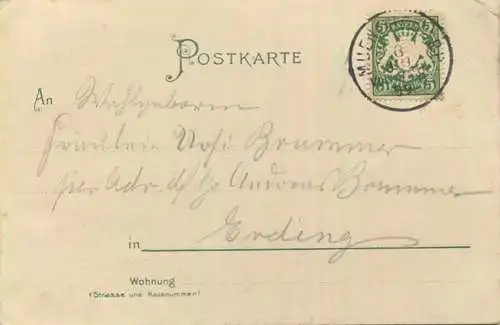 POSTKARTE
5 BAYERN 5
An Wohlgeboren
Fräulein Urfi Brummer
per Adr. d. H. Andreas Brummer
in Erding
Wohnung
(Strasse und Hausnummer)